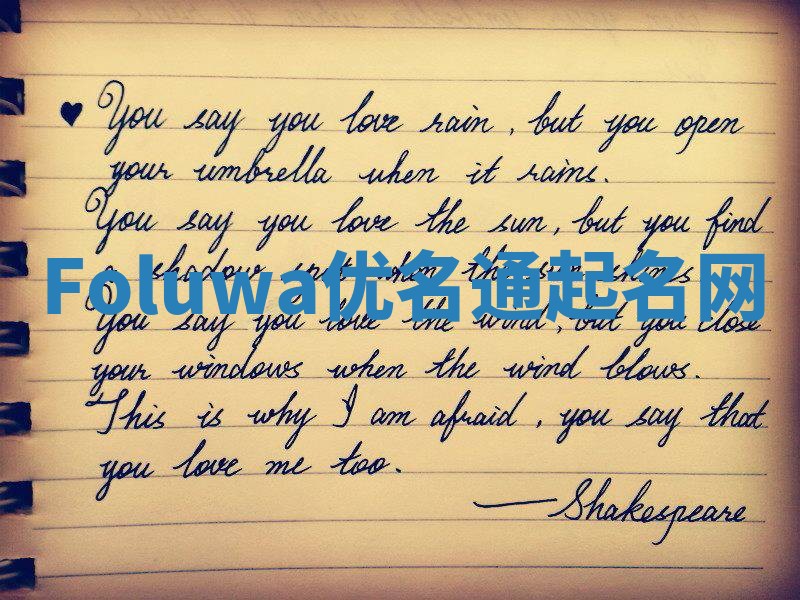 ♥ You say you love rain, but you open
your umbrella when it rains.
You say you love the sun, but you find
a shadow spot when the sun shines
Foluwa优名通起名网
You say you love the wind, but you close
your windows when the wind blows.
This is why I am afraid, you say that
you love me too.
—Shakespeare